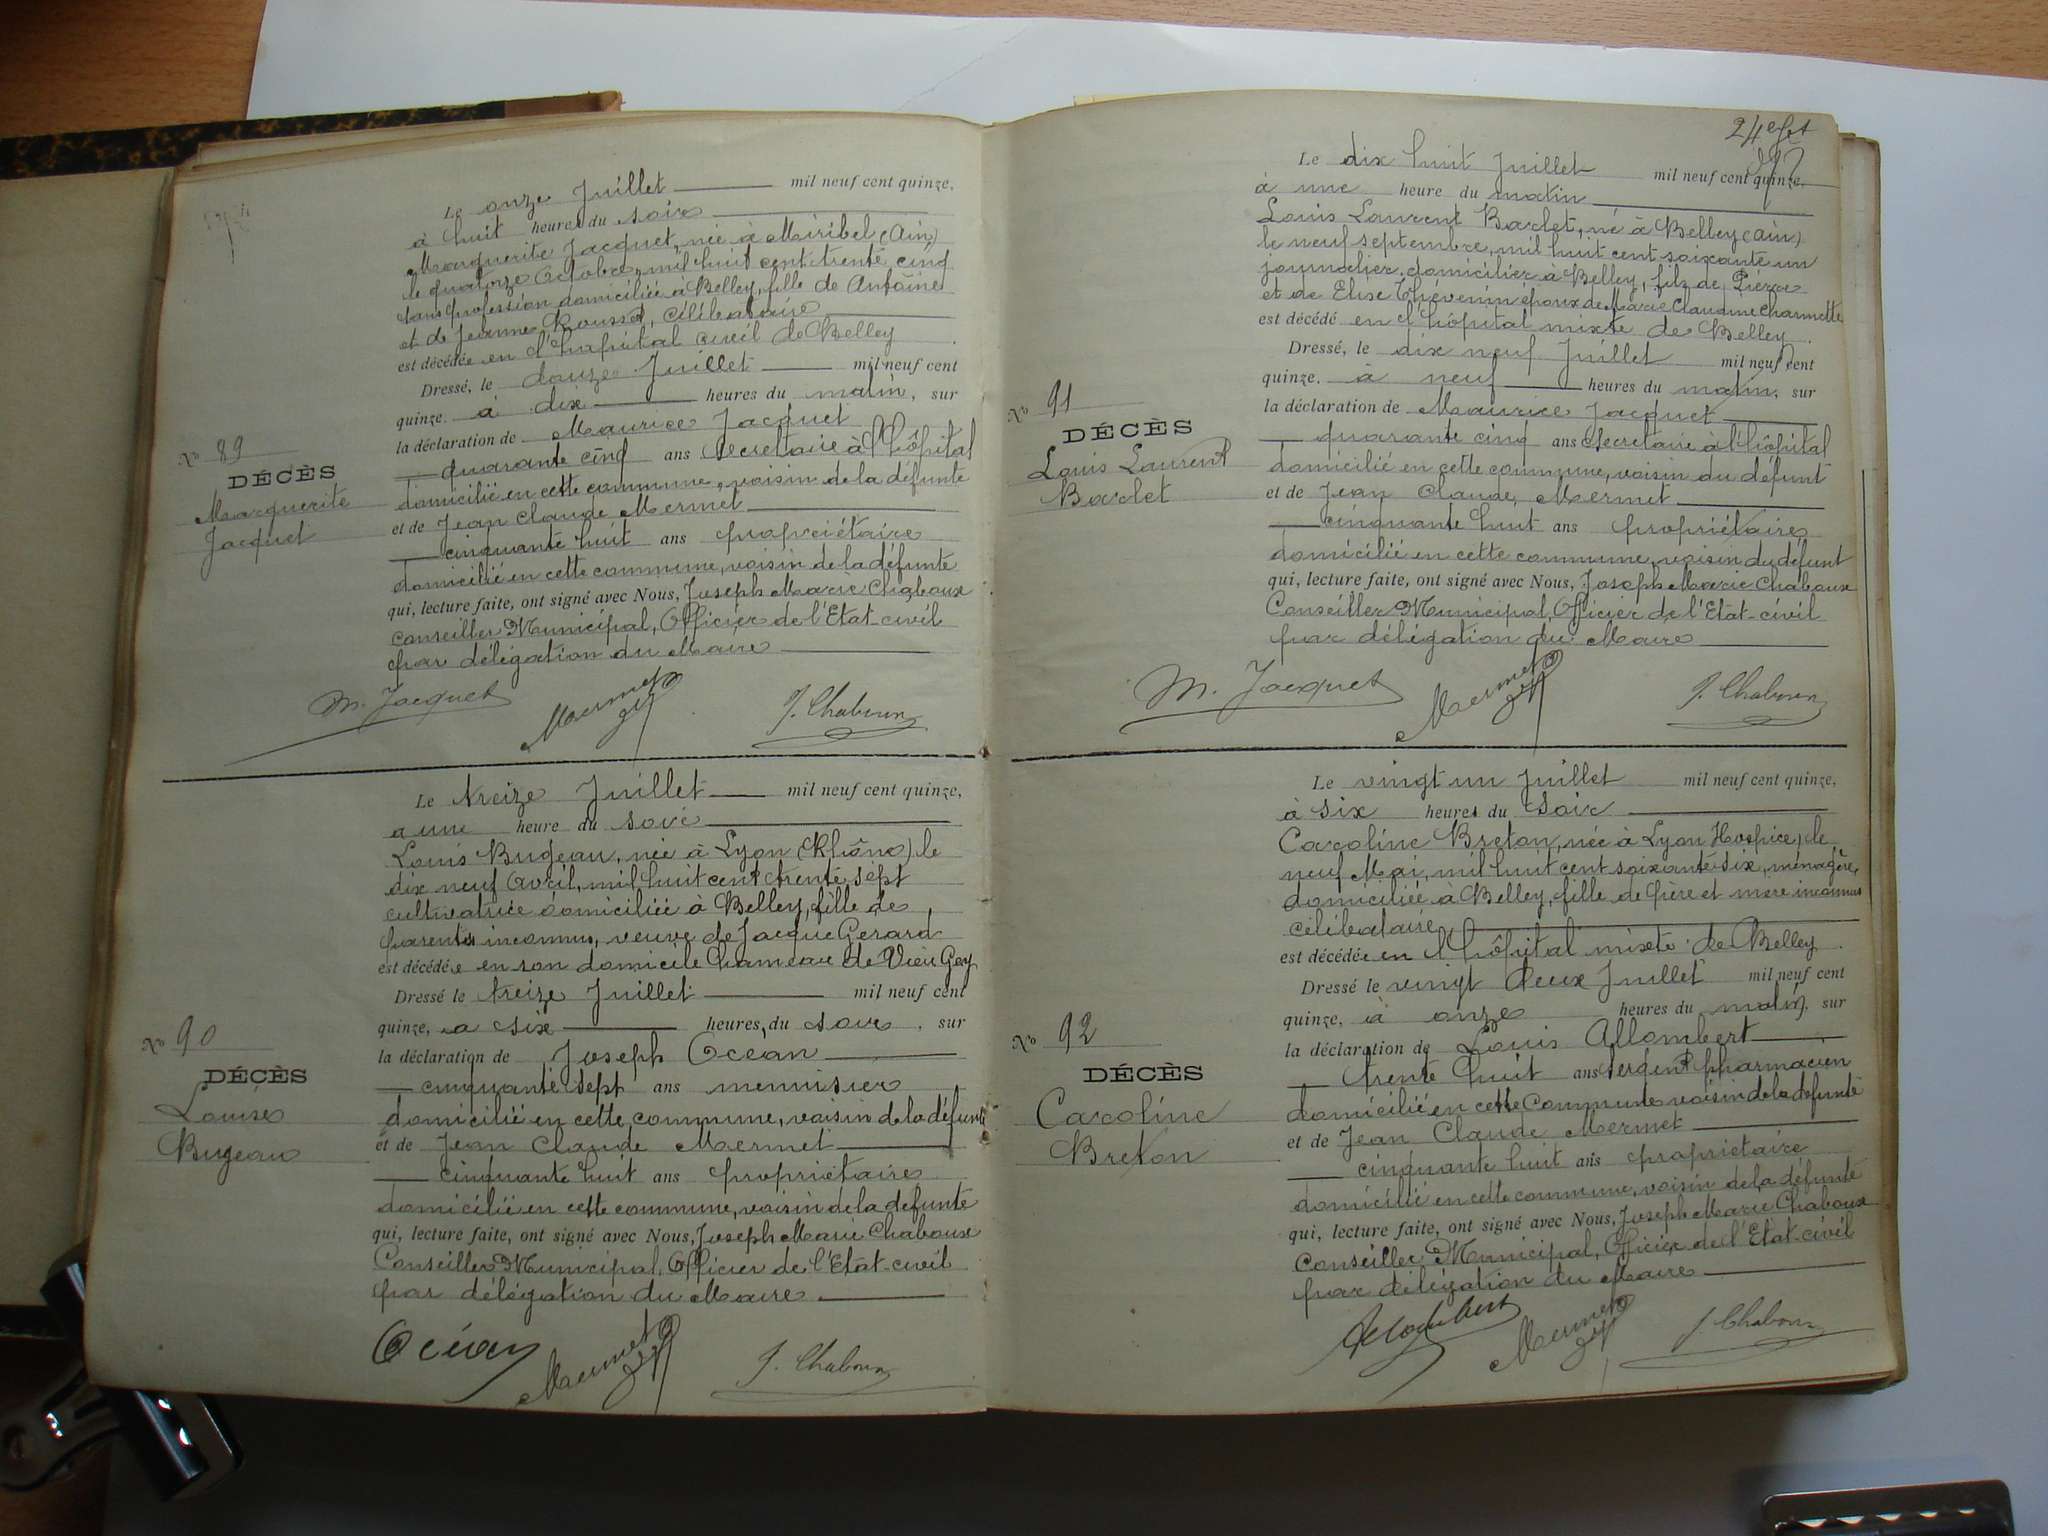 Le onze Juillet mil neuf cent quinze,
à huit heures du soir
Marguerite Jacquet, née à Miribel (Ain)
le quatorze Octobre, mil huit cent trente cinq
sans profession domiciliée à Belley, fille de Antoine
et de Jeanne Rousset, célibataire
est décédée en l'hôpital civil de Belley
Dressé, le douze Juillet mil neuf cent
quinze. à dix heures du matin, sur
la déclaration de Maurice Jacquet
quarante cinq ans Secrétaire à l'hôpital
domicilié en cette commune, voisin de la défunte
et de Jean Claude Mermet
cinquante huit ans propriétaire
domicilié en cette commune, voisin de la défunte
qui, lecture faite, ont signé avec Nous, Joseph Marie Chaboux
Conseiller Municipal, Officier de l'Etat-civil
par délégation du Maire
No 89
DÉCÈS
Marguerite
Jacquet
M. Jacquet Mermet J. Chaboux
Le treize Juillet mil neuf cent quinze,
a une heure du soir
Louis Bugeau, née à Lyon (Rhône) le
dix neuf Avril, mil huit cent trente sept
cultivatrice domiciliée à Belley, fille de
parents inconnus, veuve de Jacque Gerard
est décédée en son domicile hameau de Vieu Gey
Dressé le treize Juillet mil neuf cent
quinze, a six heures du soir, sur
la déclaration de Joseph Ocean
cinquante sept ans menuisier
domicilié en cette commune, voisin de la défunte
et de Jean Claude Mermet
cinquante huit ans propriétaire
domicilié en cette commune, voisin de la défunte
qui, lecture faite, ont signé avec Nous, Joseph Marie Chaboux
Conseiller Municipal, Officier de l'Etat-civil
par délégation du Maire
No 90
DÉCÈS
Louise
Bugeau
Océan Mermet J. Chaboux
24e
Le dix huit Juillet mil neuf cent quinze,
à une heure du matin
Louis Laurent Barlet, né à Belley (Ain)
le neuf septembre, mil huit cent soixante un
journalier domicilier à Belley, fils de Pierre
et de Elise Thévenin époux de Marie Claudine Charmette
est décédé en l'hôpital mixte de Belley.
Dressé, le dix neuf Juillet mil neuf cent
quinze. à neuf heures du matin, sur
la déclaration de Maurice Jacquet
quarante cinq ans Secrétaire à l'hôpital
domicilié en cette commune, voisin du défunt
et de Jean Claude Mermet
cinquante huit ans propriétaire
domicilié en cette commune, voisin du défunt
qui, lecture faite, ont signé avec Nous, Joseph Marie Chaboux
Conseiller Municipal, Officier de l'Etat-civil
par délégation du Maire
No 91
DÉCÈS
Louis Laurent
Barlet
M. Jacquet Mermet J. Chaboux
Le vingt un Juillet mil neuf cent quinze,
à six heures du soir
Caroline Breton, née à Lyon Hospice, le
neuf Mai, mil huit cent soixante-six, ménagère,
domiciliée à Belley, fille de père et mère inconnus
célibataire,
est décédée en l'hôpital mixte de Belley.
Dressé le vingt deux Juillet mil neuf cent
quinze, à onze heures du matin, sur
la déclaration de Louis Allombert
trente huit ans sergent pharmacien
domicilié en cette commune voisin de la défunte
et de Jean Claude Mermet
cinquante huit ans propriétaire
domicilié en cette commune, voisin de la défunte
qui, lecture faite, ont signé avec Nous, Joseph Marie Chaboux
Conseiller Municipal, Officier de l'Etat-civil
par délégation du Maire
No 92
DÉCÈS
Caroline
Breton
Mermet J. Chaboux